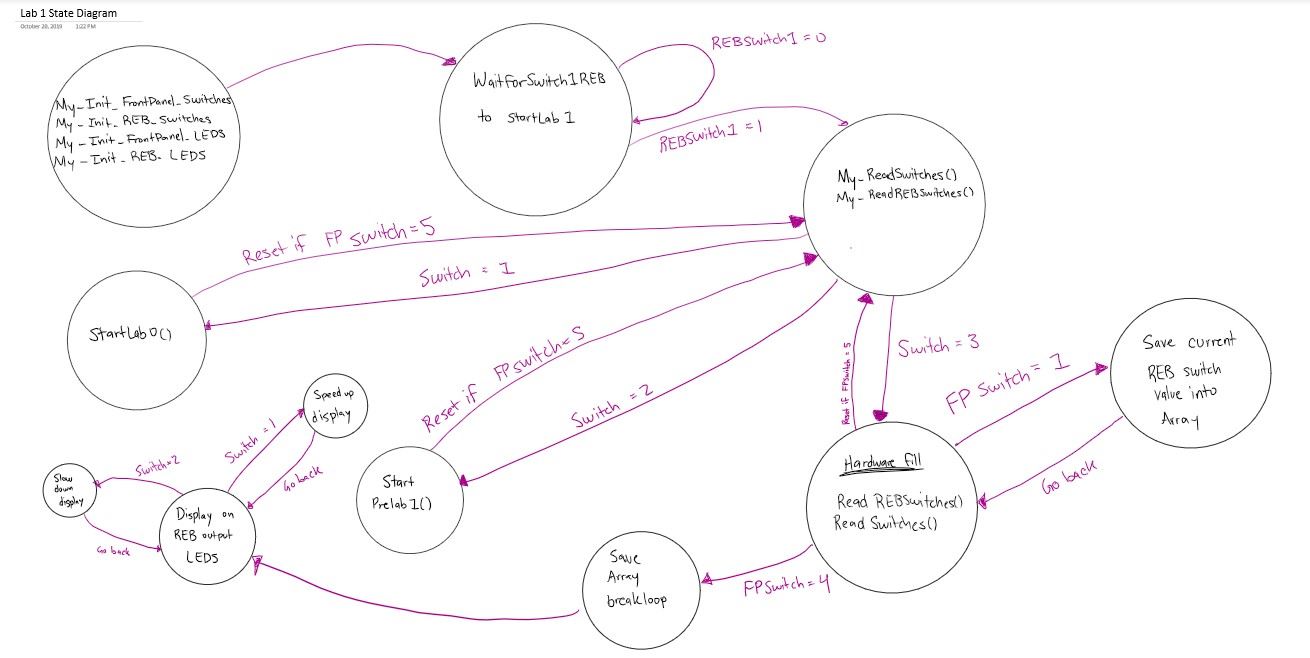 Lab 1 State Diagram
October 20, 2019 1:22 PM
My-Init_FrontPanel_Switches
My-Init_REB_Switches
My-Init_FrontPanel_LEDS
My-Init_REB_LEDS
WaitForSwitch1REB
to StartLab 1
REBSwitch1 = 0
REBSwitch1 = 1
My-ReadSwitches()
My-ReadREBSwitches()
Reset if FP Switch = 5
Switch = 1
StartLab0()
Reset if FPswitch = 5
Switch = 2
Start
Prelab1()
Reset if FPSwitch = 5
Switch = 3
Hardware Fill
Read REBSwitches()
Read Switches()
FP Switch = 1
Save current
REB switch
value into
Array
Go back
FPSwitch = 4
Save
Array
breakloop
Display on
REB output
LEDS
Switch = 1
Speed up
display
Go back
Switch = 2
Slow
down
display
Go back